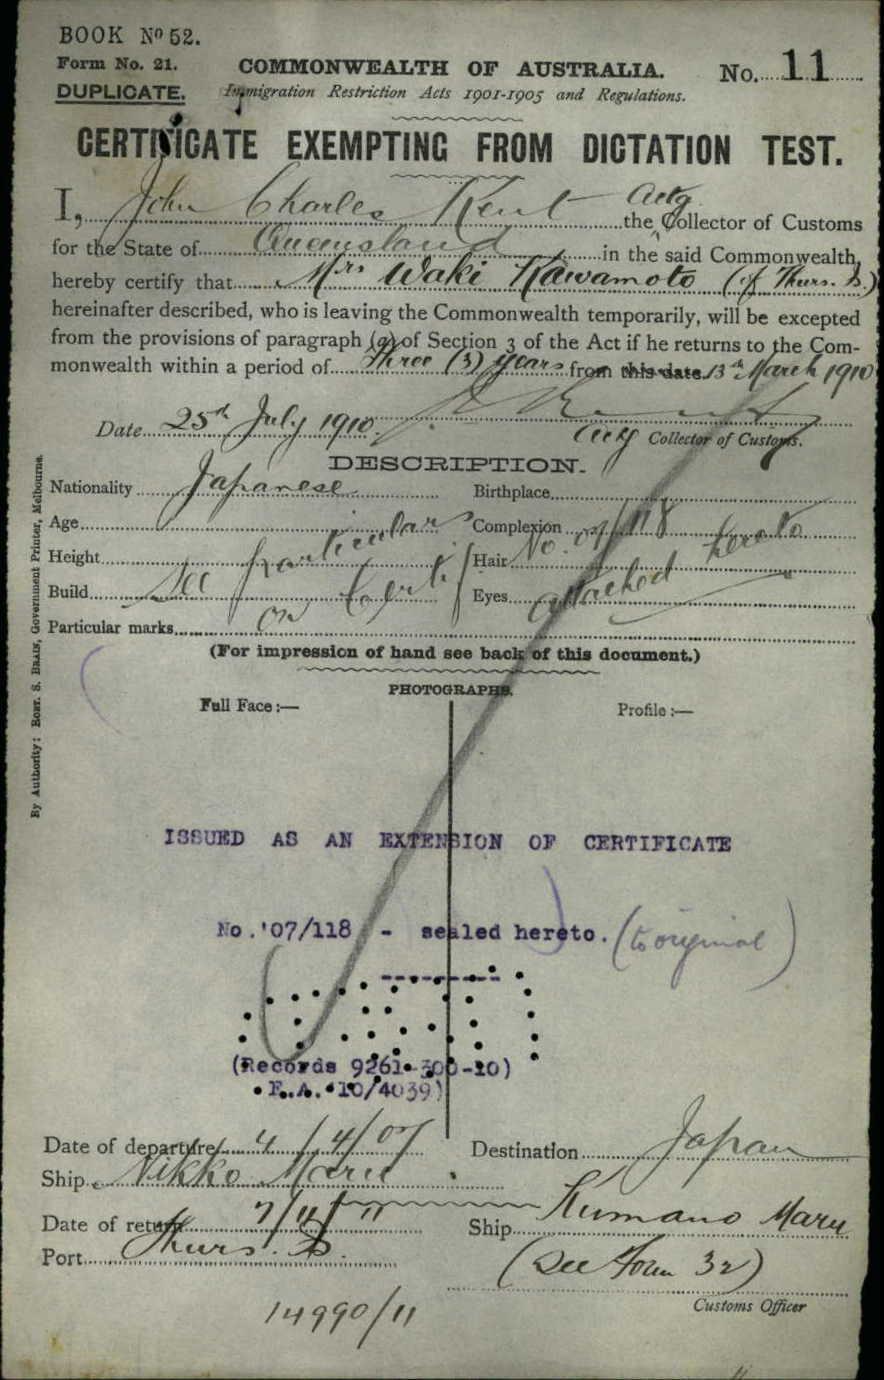 BOOK Nº 52.
Form No. 21.
DUPLICATE.
COMMONWEALTH OF AUSTRALIA.
No. 11
Immigration Restriction Acts 1901-1905 and Regulations.
CERTIFICATE EXEMPTING FROM DICTATION TEST.
I, John Charles Kent the Actg Collector of Customs
for the State of Queensland in the said Commonwealth,
hereby certify that Mrs Waki Kawamoto (of Thurs. Is.)
hereinafter described, who is leaving the Commonwealth temporarily, will be excepted
from the provisions of paragraph (a) of Section 3 of the Act if he returns to the Com-
monwealth within a period of Three (3) years from this date 13th March 1910
Date 25th July 1910.
Actg Collector of Customs.
DESCRIPTION.
Nationality Japanese
Birthplace
Age
Complexion
Height
Hair
Build
Eyes
See particulars on Cert. No. 07/118 attached hereto
Particular marks
(For impression of hand see back of this document.)
PHOTOGRAPHS.
Full Face :—
Profile :—
ISSUED AS AN EXTENSION OF CERTIFICATE
No. '07/118 - sealed hereto. (to original)
(Records 9261-300-10)
E.A. 10/4039)
Date of departure 4/4/07
Destination Japan
Ship Nikko Maru
Date of return 7/11/11
Ship Kumano Maru
Port Thurs. Is.
(See Form 32)
Customs Officer
14990/11
By Authority: Robt. S. Brain, Government Printer, Melbourne.